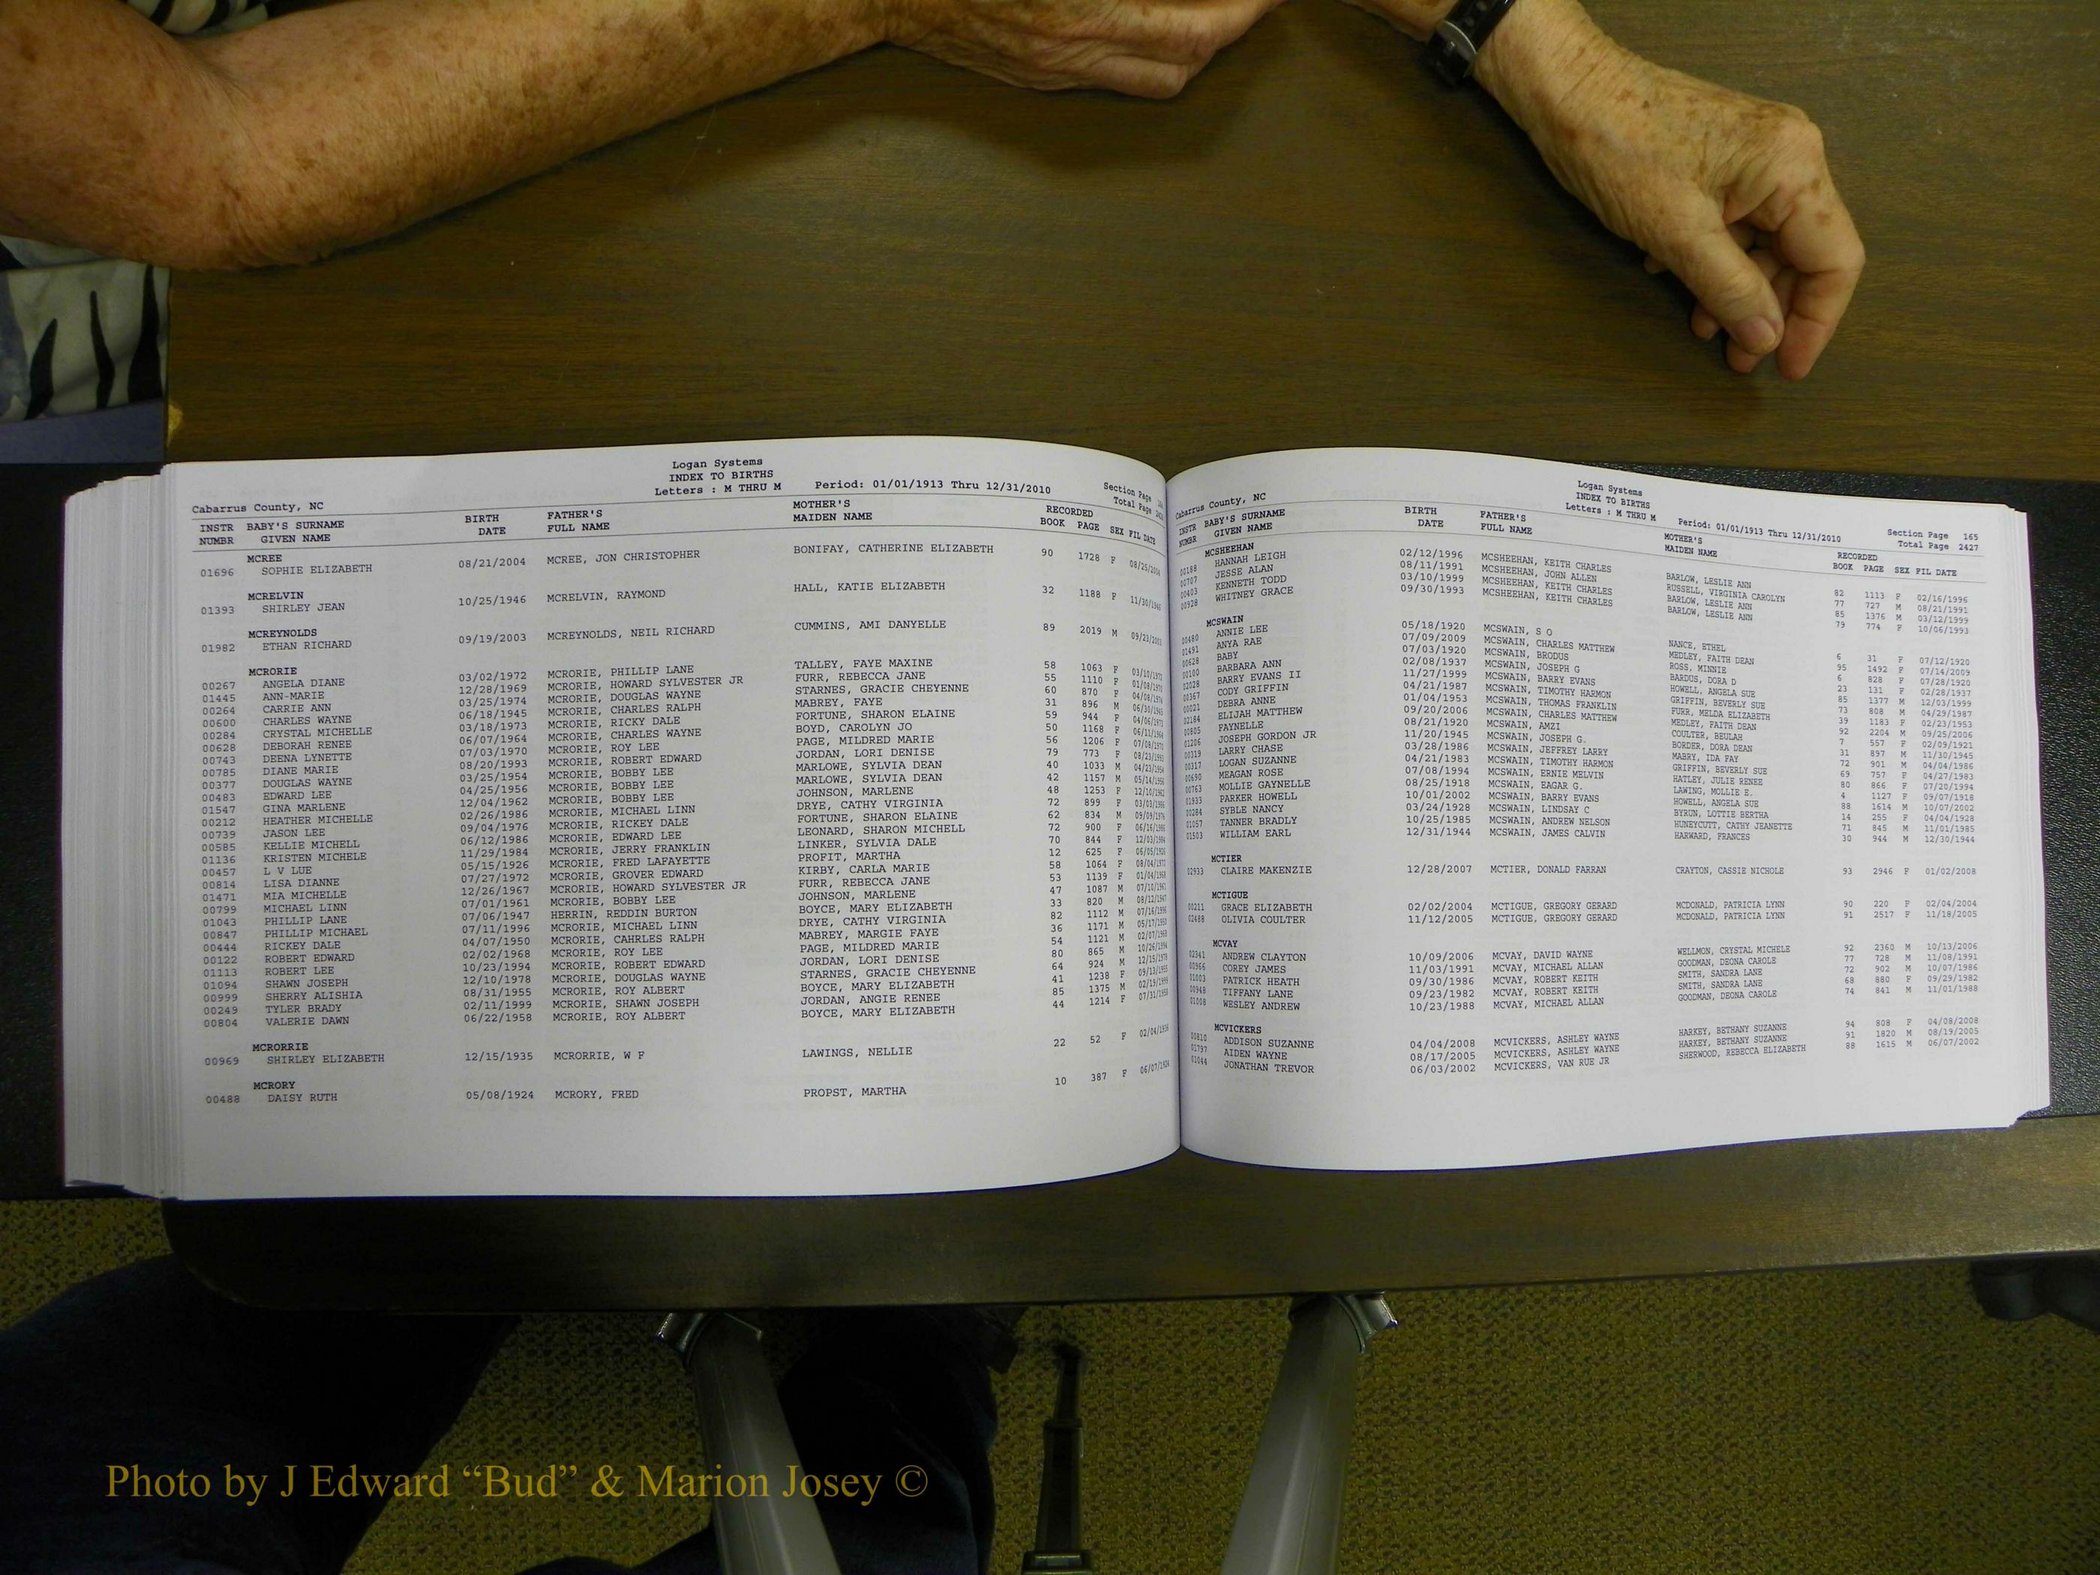 Logan Systems
INDEX TO BIRTHS
Cabarrus County, NC Letters : M THRU M Period: 01/01/1913 Thru 12/31/2010 Section Page
Total Page
INSTR BABY'S SURNAME BIRTH FATHER'S MOTHER'S RECORDED
NUMBR GIVEN NAME DATE FULL NAME MAIDEN NAME BOOK PAGE SEX FIL DATE
MCREE
01696 SOPHIE ELIZABETH 08/21/2004 MCREE, JON CHRISTOPHER BONIFAY, CATHERINE ELIZABETH 90 1728 F 08/25/2004
MCRELVIN
01393 SHIRLEY JEAN 10/25/1946 MCRELVIN, RAYMOND HALL, KATIE ELIZABETH 32 1188 F
MCREYNOLDS
01982 ETHAN RICHARD 09/19/2003 MCREYNOLDS, NEIL RICHARD CUMMINS, AMI DANYELLE 89 2019 M 09/23/2003
MCRORIE
00267 ANGELA DIANE 03/02/1972 MCRORIE, PHILLIP LANE TALLEY, FAYE MAXINE 58 1063 F
01445 ANN-MARIE 12/28/1969 MCRORIE, HOWARD SYLVESTER JR FURR, REBECCA JANE 55 1110 F
00264 CARRIE ANN 03/25/1974 MCRORIE, DOUGLAS WAYNE STARNES, GRACIE CHEYENNE 60 870 F
00600 CHARLES WAYNE 06/18/1945 MCRORIE, CHARLES RALPH MABREY, FAYE 31 896 M
00284 CRYSTAL MICHELLE 03/18/1973 MCRORIE, RICKY DALE FORTUNE, SHARON ELAINE 59 944 F
00628 DEBORAH RENEE 06/07/1964 MCRORIE, CHARLES WAYNE BOYD, CAROLYN JO 50 1168 F
00743 DEENA LYNETTE 07/03/1970 MCRORIE, ROY LEE PAGE, MILDRED MARIE 56 1206 F
00785 DIANE MARIE 08/20/1993 MCRORIE, ROBERT EDWARD JORDAN, LORI DENISE 79 773 F
00377 DOUGLAS WAYNE 03/25/1954 MCRORIE, BOBBY LEE MARLOWE, SYLVIA DEAN 40 1033 M
00483 EDWARD LEE 04/25/1956 MCRORIE, BOBBY LEE MARLOWE, SYLVIA DEAN 42 1157 M
01547 GINA MARLENE 12/04/1962 MCRORIE, BOBBY LEE JOHNSON, MARLENE 48 1253 F
00212 HEATHER MICHELLE 02/26/1986 MCRORIE, MICHAEL LINN DRYE, CATHY VIRGINIA 72 899 F
00739 JASON LEE 09/04/1976 MCRORIE, RICKEY DALE FORTUNE, SHARON ELAINE 62 834 M
00585 KELLIE MICHELL 06/12/1986 MCRORIE, EDWARD LEE LEONARD, SHARON MICHELL 72 900 F
01136 KRISTEN MICHELE 11/29/1984 MCRORIE, JERRY FRANKLIN LINKER, SYLVIA DALE 70 844 F
00457 L V LUE 05/15/1926 MCRORIE, FRED LAFAYETTE PROFIT, MARTHA 12 625 F
00814 LISA DIANNE 07/27/1972 MCRORIE, GROVER EDWARD KIRBY, CARLA MARIE 58 1064 F
01471 MIA MICHELLE 12/26/1967 MCRORIE, HOWARD SYLVESTER JR FURR, REBECCA JANE 53 1139 F
00799 MICHAEL LINN 07/01/1961 MCRORIE, BOBBY LEE JOHNSON, MARLENE 47 1087 M
01043 PHILLIP LANE 07/06/1947 HERRIN, REDDIN BURTON BOYCE, MARY ELIZABETH 33 820 M
00847 PHILLIP MICHAEL 07/11/1996 MCRORIE, MICHAEL LINN DRYE, CATHY VIRGINIA 82 1112 M
00444 RICKEY DALE 04/07/1950 MCRORIE, CAHRLES RALPH MABREY, MARGIE FAYE 36 1171 M
00122 ROBERT EDWARD 02/02/1968 MCRORIE, ROY LEE PAGE, MILDRED MARIE 54 1121 M
01113 ROBERT LEE 10/23/1994 MCRORIE, ROBERT EDWARD JORDAN, LORI DENISE 80 865 M
01094 SHAWN JOSEPH 12/10/1978 MCRORIE, DOUGLAS WAYNE STARNES, GRACIE CHEYENNE 64 924 M
00999 SHERRY ALISHIA 08/31/1955 MCRORIE, ROY ALBERT BOYCE, MARY ELIZABETH 41 1238 F
00249 TYLER BRADY 02/11/1999 MCRORIE, SHAWN JOSEPH JORDAN, ANGIE RENEE 85 1375 M
00804 VALERIE DAWN 06/22/1958 MCRORIE, ROY ALBERT BOYCE, MARY ELIZABETH 44 1214 F
MCRORRIE
00969 SHIRLEY ELIZABETH 12/15/1935 MCRORRIE, W F LAWINGS, NELLIE 22 52 F
MCRORY
00488 DAISY RUTH 05/08/1924 MCRORY, FRED PROPST, MARTHA 10 387 F
Logan Systems
INDEX TO BIRTHS
Cabarrus County, NC Letters : M THRU M Period: 01/01/1913 Thru 12/31/2010 Section Page 165
Total Page 2427
INSTR BABY'S SURNAME BIRTH FATHER'S MOTHER'S RECORDED
NUMBR GIVEN NAME DATE FULL NAME MAIDEN NAME BOOK PAGE SEX FIL DATE
MCSHEEHAN
00188 HANNAH LEIGH 02/12/1996 MCSHEEHAN, KEITH CHARLES BARLOW, LESLIE ANN 82 1113 F 02/16/1996
00707 JESSE ALAN 08/11/1991 MCSHEEHAN, JOHN ALLEN RUSSELL, VIRGINIA CAROLYN 77 727 M 08/21/1991
00403 KENNETH TODD 03/10/1999 MCSHEEHAN, KEITH CHARLES BARLOW, LESLIE ANN 85 1376 M 03/12/1999
00928 WHITNEY GRACE 09/30/1993 MCSHEEHAN, KEITH CHARLES BARLOW, LESLIE ANN 79 774 F 10/06/1993
MCSWAIN
00480 ANNIE LEE 05/18/1920 MCSWAIN, S O NANCE, ETHEL 6 31 F 07/12/1920
01491 ANYA RAE 07/09/2009 MCSWAIN, CHARLES MATTHEW MEDLEY, FAITH DEAN 95 1492 F 07/14/2009
00628 BABY 07/03/1920 MCSWAIN, BRODUS ROSS, MINNIE 6 828 F 07/28/1920
00100 BARBARA ANN 02/08/1937 MCSWAIN, JOSEPH G BARDUS, DORA D 23 131 F 02/28/1937
02028 BARRY EVANS II 11/27/1999 MCSWAIN, BARRY EVANS HOWELL, ANGELA SUE 85 1377 M 12/03/1999
00367 CODY GRIFFIN 04/21/1987 MCSWAIN, TIMOTHY HARMON GRIFFIN, BEVERLY SUE 73 808 M 04/29/1987
00021 DEBRA ANNE 01/04/1953 MCSWAIN, THOMAS FRANKLIN FURR, MELDA ELIZABETH 39 1183 F 02/23/1953
02184 ELIJAH MATTHEW 09/20/2006 MCSWAIN, CHARLES MATTHEW MEDLEY, FAITH DEAN 92 2204 M 09/25/2006
00805 FAYNELLE 08/21/1920 MCSWAIN, AMZI COULTER, BEULAH 7 557 F 02/09/1921
01206 JOSEPH GORDON JR 11/20/1945 MCSWAIN, JOSEPH G. BORDER, DORA DEAN 31 897 M 11/30/1945
00319 LARRY CHASE 03/28/1986 MCSWAIN, JEFFREY LARRY MABRY, IDA FAY 72 901 M 04/04/1986
00317 LOGAN SUZANNE 04/21/1983 MCSWAIN, TIMOTHY HARMON GRIFFIN, BEVERLY SUE 69 757 F 04/27/1983
00690 MEAGAN ROSE 07/08/1994 MCSWAIN, ERNIE MELVIN HATLEY, JULIE RENEE 80 866 F 07/20/1994
00763 MOLLIE GAYNELLE 08/25/1918 MCSWAIN, EAGAR G. LAWING, MOLLIE E. 4 1127 F 09/07/1918
01933 PARKER HOWELL 10/01/2002 MCSWAIN, BARRY EVANS HOWELL, ANGELA SUE 88 1614 M 10/07/2002
00284 SYBLE NANCY 03/24/1928 MCSWAIN, LINDSAY C BYRUN, LOTTIE BERTHA 14 255 F 04/04/1928
01057 TANNER BRADLY 10/25/1985 MCSWAIN, ANDREW NELSON HUNEYCUTT, CATHY JEANETTE 71 845 M 11/01/1985
01503 WILLIAM EARL 12/31/1944 MCSWAIN, JAMES CALVIN HARWARD, FRANCES 30 944 M 12/30/1944
MCTIER
02933 CLAIRE MAKENZIE 12/28/2007 MCTIER, DONALD FARRAN CRAYTON, CASSIE NICHOLE 93 2946 F 01/02/2008
MCTIGUE
00211 GRACE ELIZABETH 02/02/2004 MCTIGUE, GREGORY GERARD MCDONALD, PATRICIA LYNN 90 220 F 02/04/2004
02488 OLIVIA COULTER 11/12/2005 MCTIGUE, GREGORY GERARD MCDONALD, PATRICIA LYNN 91 2517 F 11/18/2005
MCVAY
02341 ANDREW CLAYTON 10/09/2006 MCVAY, DAVID WAYNE WELLMON, CRYSTAL MICHELE 92 2360 M 10/13/2006
00966 COREY JAMES 11/03/1991 MCVAY, MICHAEL ALLAN GOODMAN, DEONA CAROLE 77 728 M 11/08/1991
01003 PATRICK HEATH 09/30/1986 MCVAY, ROBERT KEITH SMITH, SANDRA LANE 72 902 M 10/07/1986
00948 TIFFANY LANE 09/23/1982 MCVAY, ROBERT KEITH SMITH, SANDRA LANE 68 880 F 09/29/1982
01008 WESLEY ANDREW 10/23/1988 MCVAY, MICHAEL ALLAN GOODMAN, DEONA CAROLE 74 841 M 11/01/1988
MCVICKERS
00810 ADDISON SUZANNE 04/04/2008 MCVICKERS, ASHLEY WAYNE HARKEY, BETHANY SUZANNE 94 808 F 04/08/2008
01797 AIDEN WAYNE 08/17/2005 MCVICKERS, ASHLEY WAYNE HARKEY, BETHANY SUZANNE 91 1820 M 08/19/2005
01044 JONATHAN TREVOR 06/03/2002 MCVICKERS, VAN RUE JR SHERWOOD, REBECCA ELIZABETH 88 1615 M 06/07/2002
Photo by J Edward “Bud” & Marion Josey ©